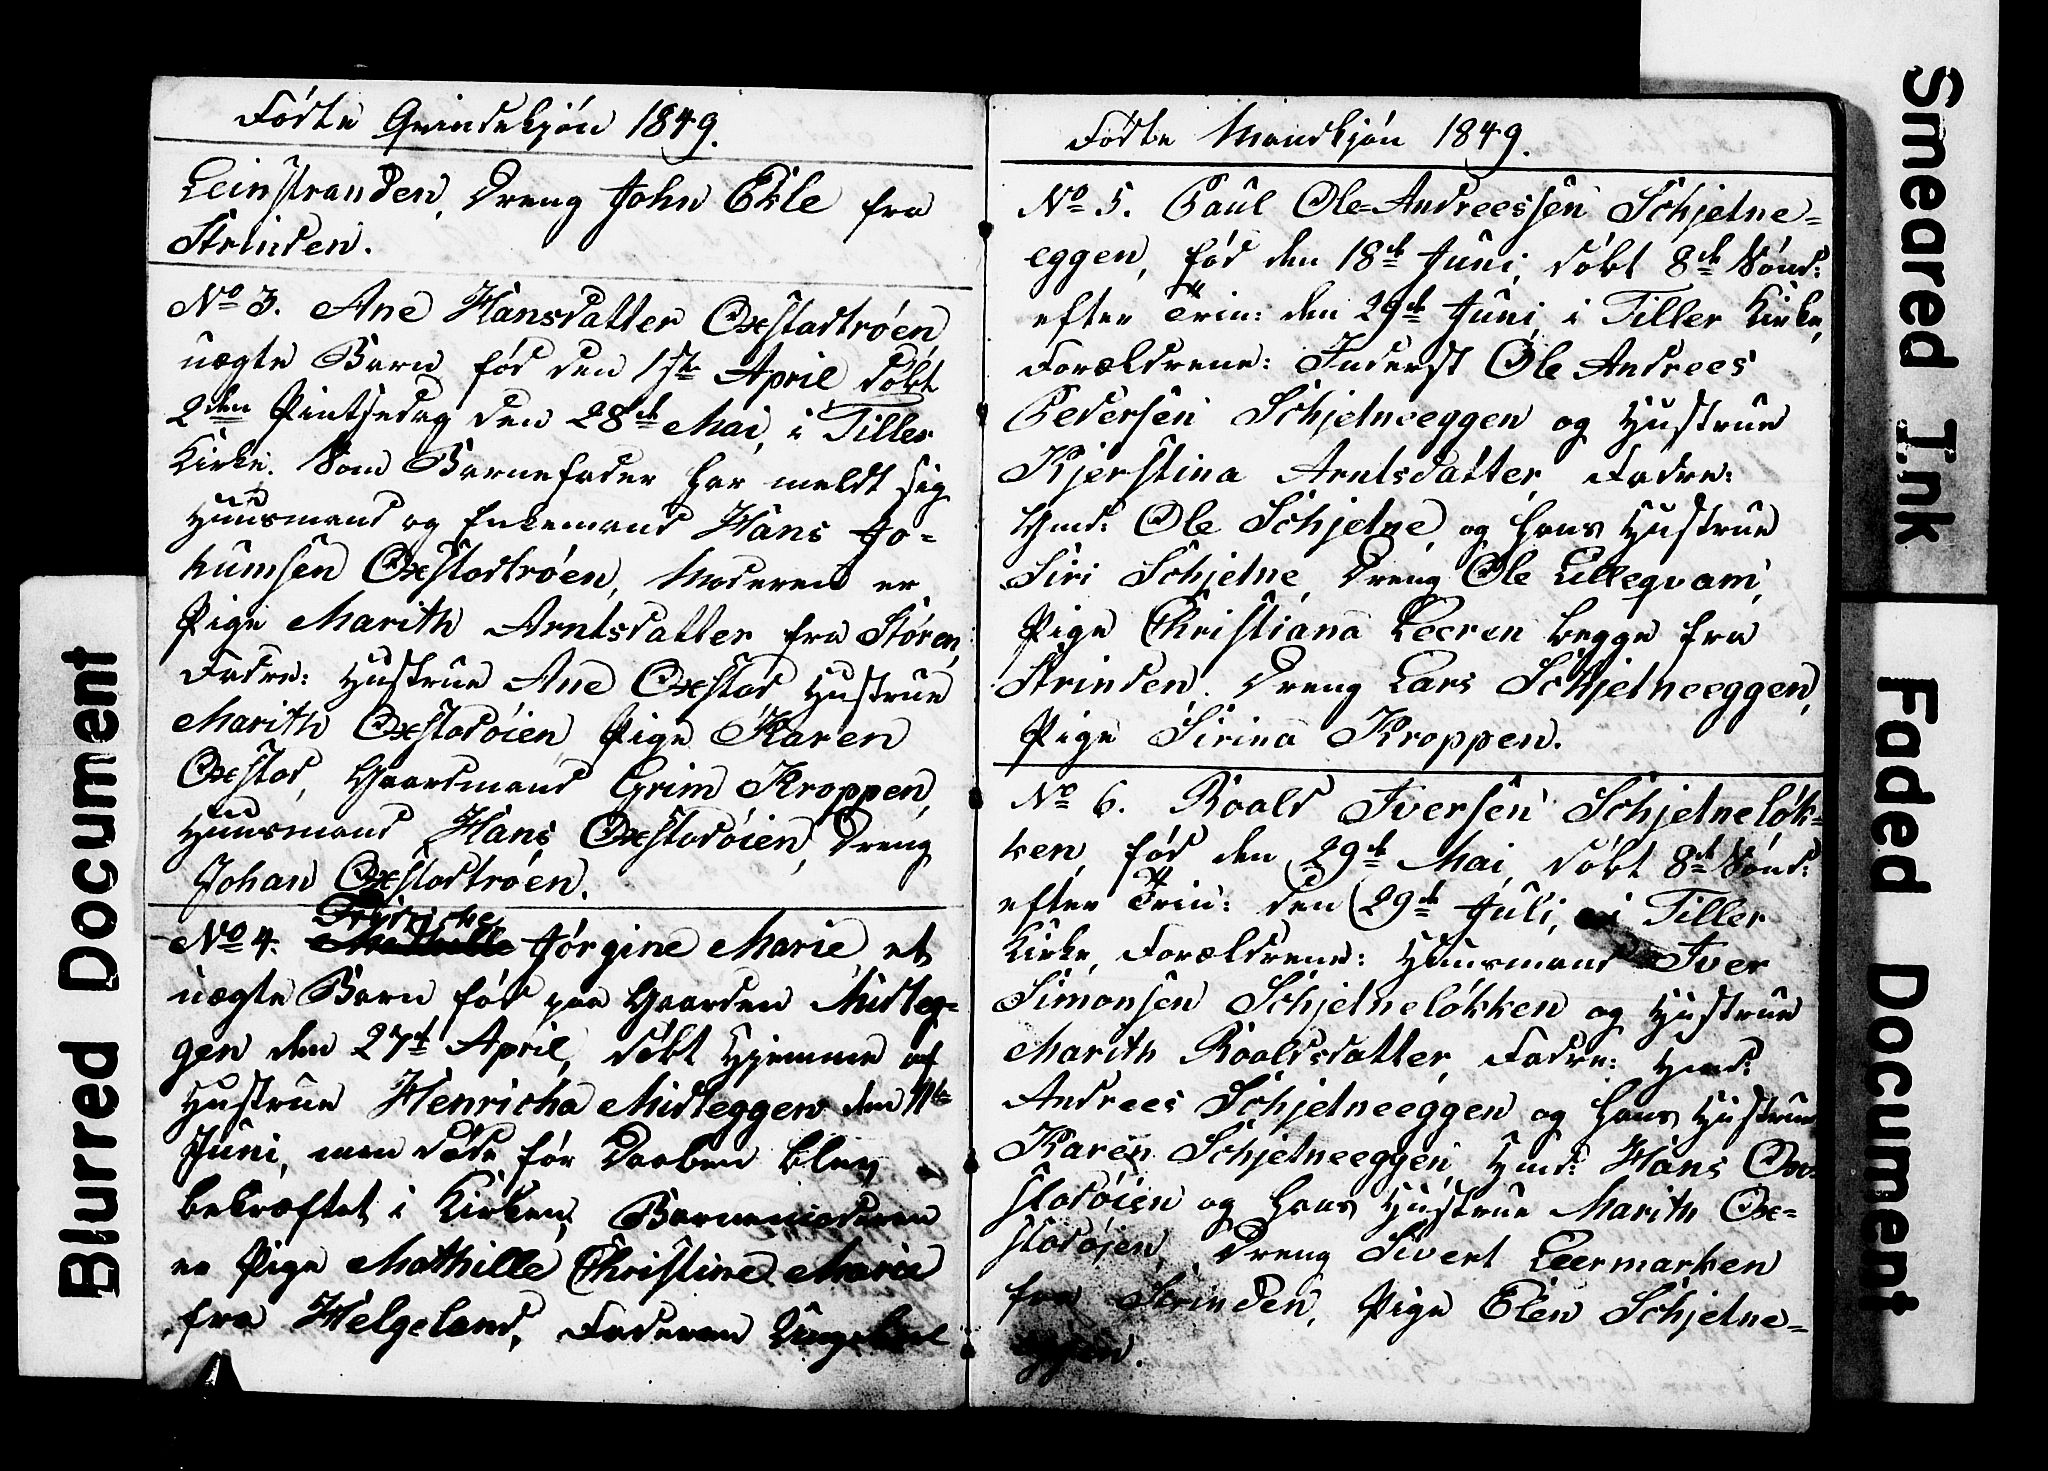 Fødte Qvindekjøn 1849.
Leinstranden, Dreng John Ekle fra
Strinden.
No 3. Ane Hansdatter Oxstadtrøen,
uægte Barn, fød den 1ste April, døbt
2den Pintsedag den 28de Mai, i Tiller
Kirke. Som Barnefader har meldt sig
Huusmand og Enkemand Hans Jo-
kumsen Oxstadtrøen, Moderen er
Pige Marith Arntsdatter fra Støren,
Fadre: Hustrue Ane Oxstad, Hustrue
Marith Oxstadøien, Pige Karen
Oxstad, Gaardmand Grim Kroppen,
Huusmand Hans Oxstadøien, Dreng
Johan Oxstadtrøen.
Fridriche
No 4. Mathille Jørgine Marie, et
uægte Barn fød paa Gaarden Midleg-
gen den 27de April, døbt Hjemme af
Hustrue Henricha Midleggen den 11te
Juni, men døde før Daaben blev
bekræftet i Kirken, Barnemoderen
er Pige Mathille Christine Marie
fra Helgeland, Faderen
Fødte Mandkjøn 1849.
No 5. Paul Ole-Andreessen Schjetne-
eggen, fød den 18de Juni, døbt 8de Sønd:
efter Trin: den 29de Juni, i Tiller Kirke,
Forældrene: Inderst Ole Andrees
Pedersen Schjetneeggen og Hustrue
Kjerstina Arntsdatter, Fadre:
Gmd: Ole Schjetne og hans Hustrue
Siri Schjetne, Dreng Ole Lillegvam,
Pige Christiana Leeren begge fra
Strinden. Dreng Lars Schjetneeggen,
Pige Sirina Kroppen.
No 6. Roald Iversen Schjetneløk-
ken, fød den 29de Mai, døbt 8de Sønd:
efter Trin: den 29de Juli, i Tiller
Kirke, Forældrene: Huusmand Iver
Simonsen Schjetneløkken og Hustrue
Marith Roaldsdatter, Fadre: Hmd:
Andrees Schjetneeggen og hans Hustrue
Karen Schjetneeggen, Hmd: Hans Ox-
stadøien og hans Hustrue Marith Ox-
stadøjen, Dreng Sivert Leermarken
fra Strinden, Pige Elen Schjetne-
eggen.
Blurred Document
Smeared Ink
Faded Document